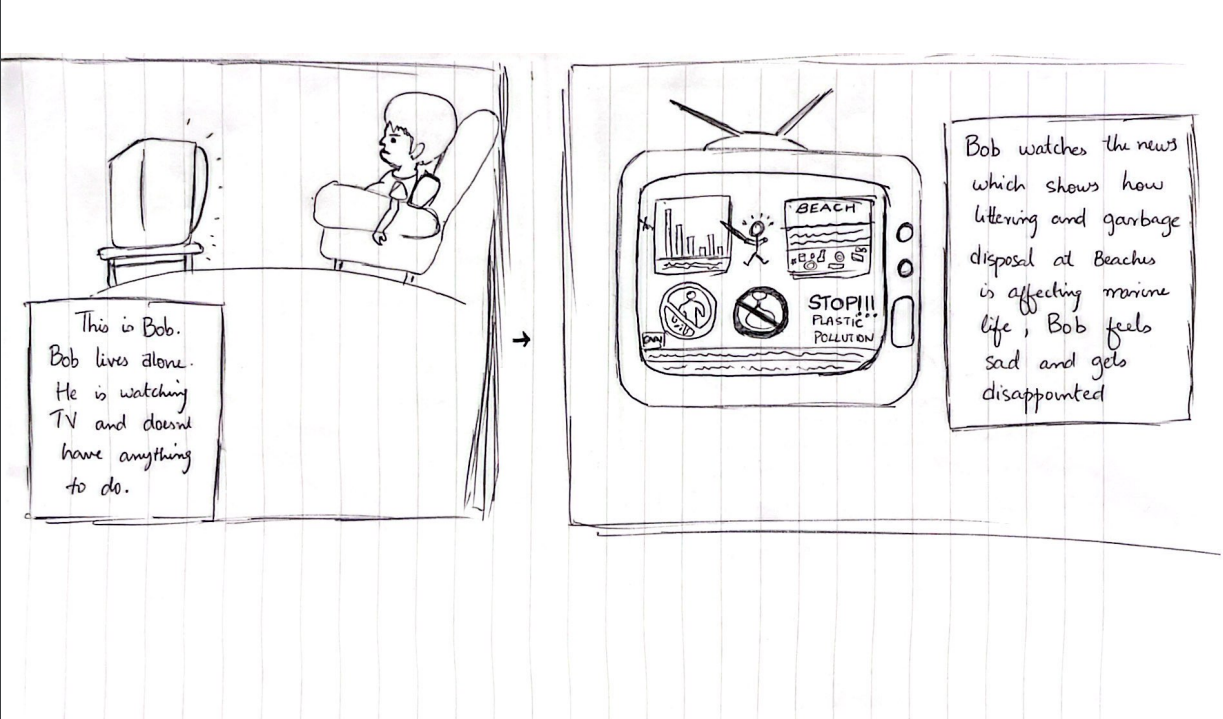 This is Bob.
Bob lives alone.
He is watching
TV and doesnt
have anything
to do.
BEACH
STOP!!!
PLASTIC
POLLUTION
Bob watches the news
which shows how
littering and garbage
disposal at Beaches
is affecting marine
life, Bob feels
sad and gets
disappointed